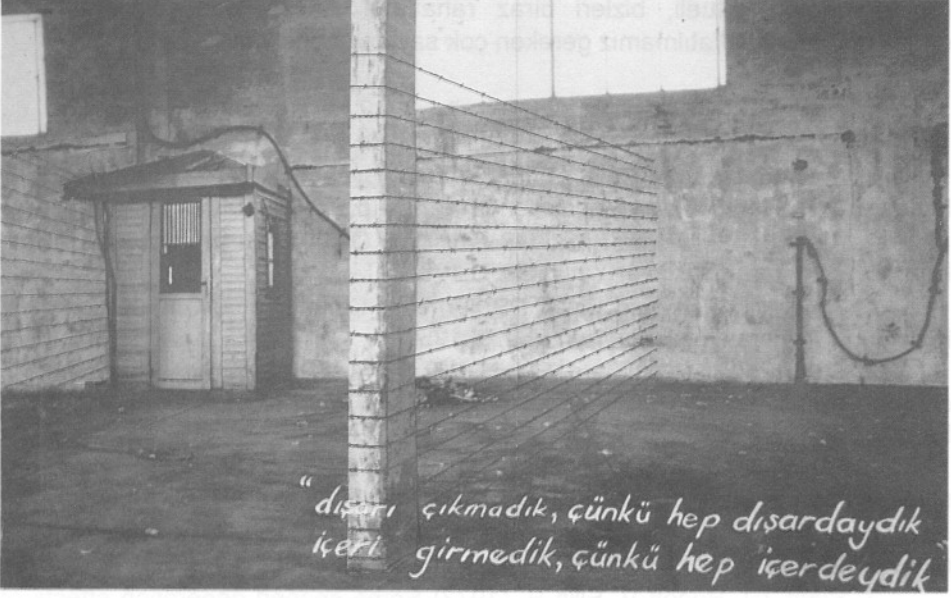 "dışarı çıkmadık, çünkü hep dışardaydık
içeri girmedik, çünkü hep içerdeydik"